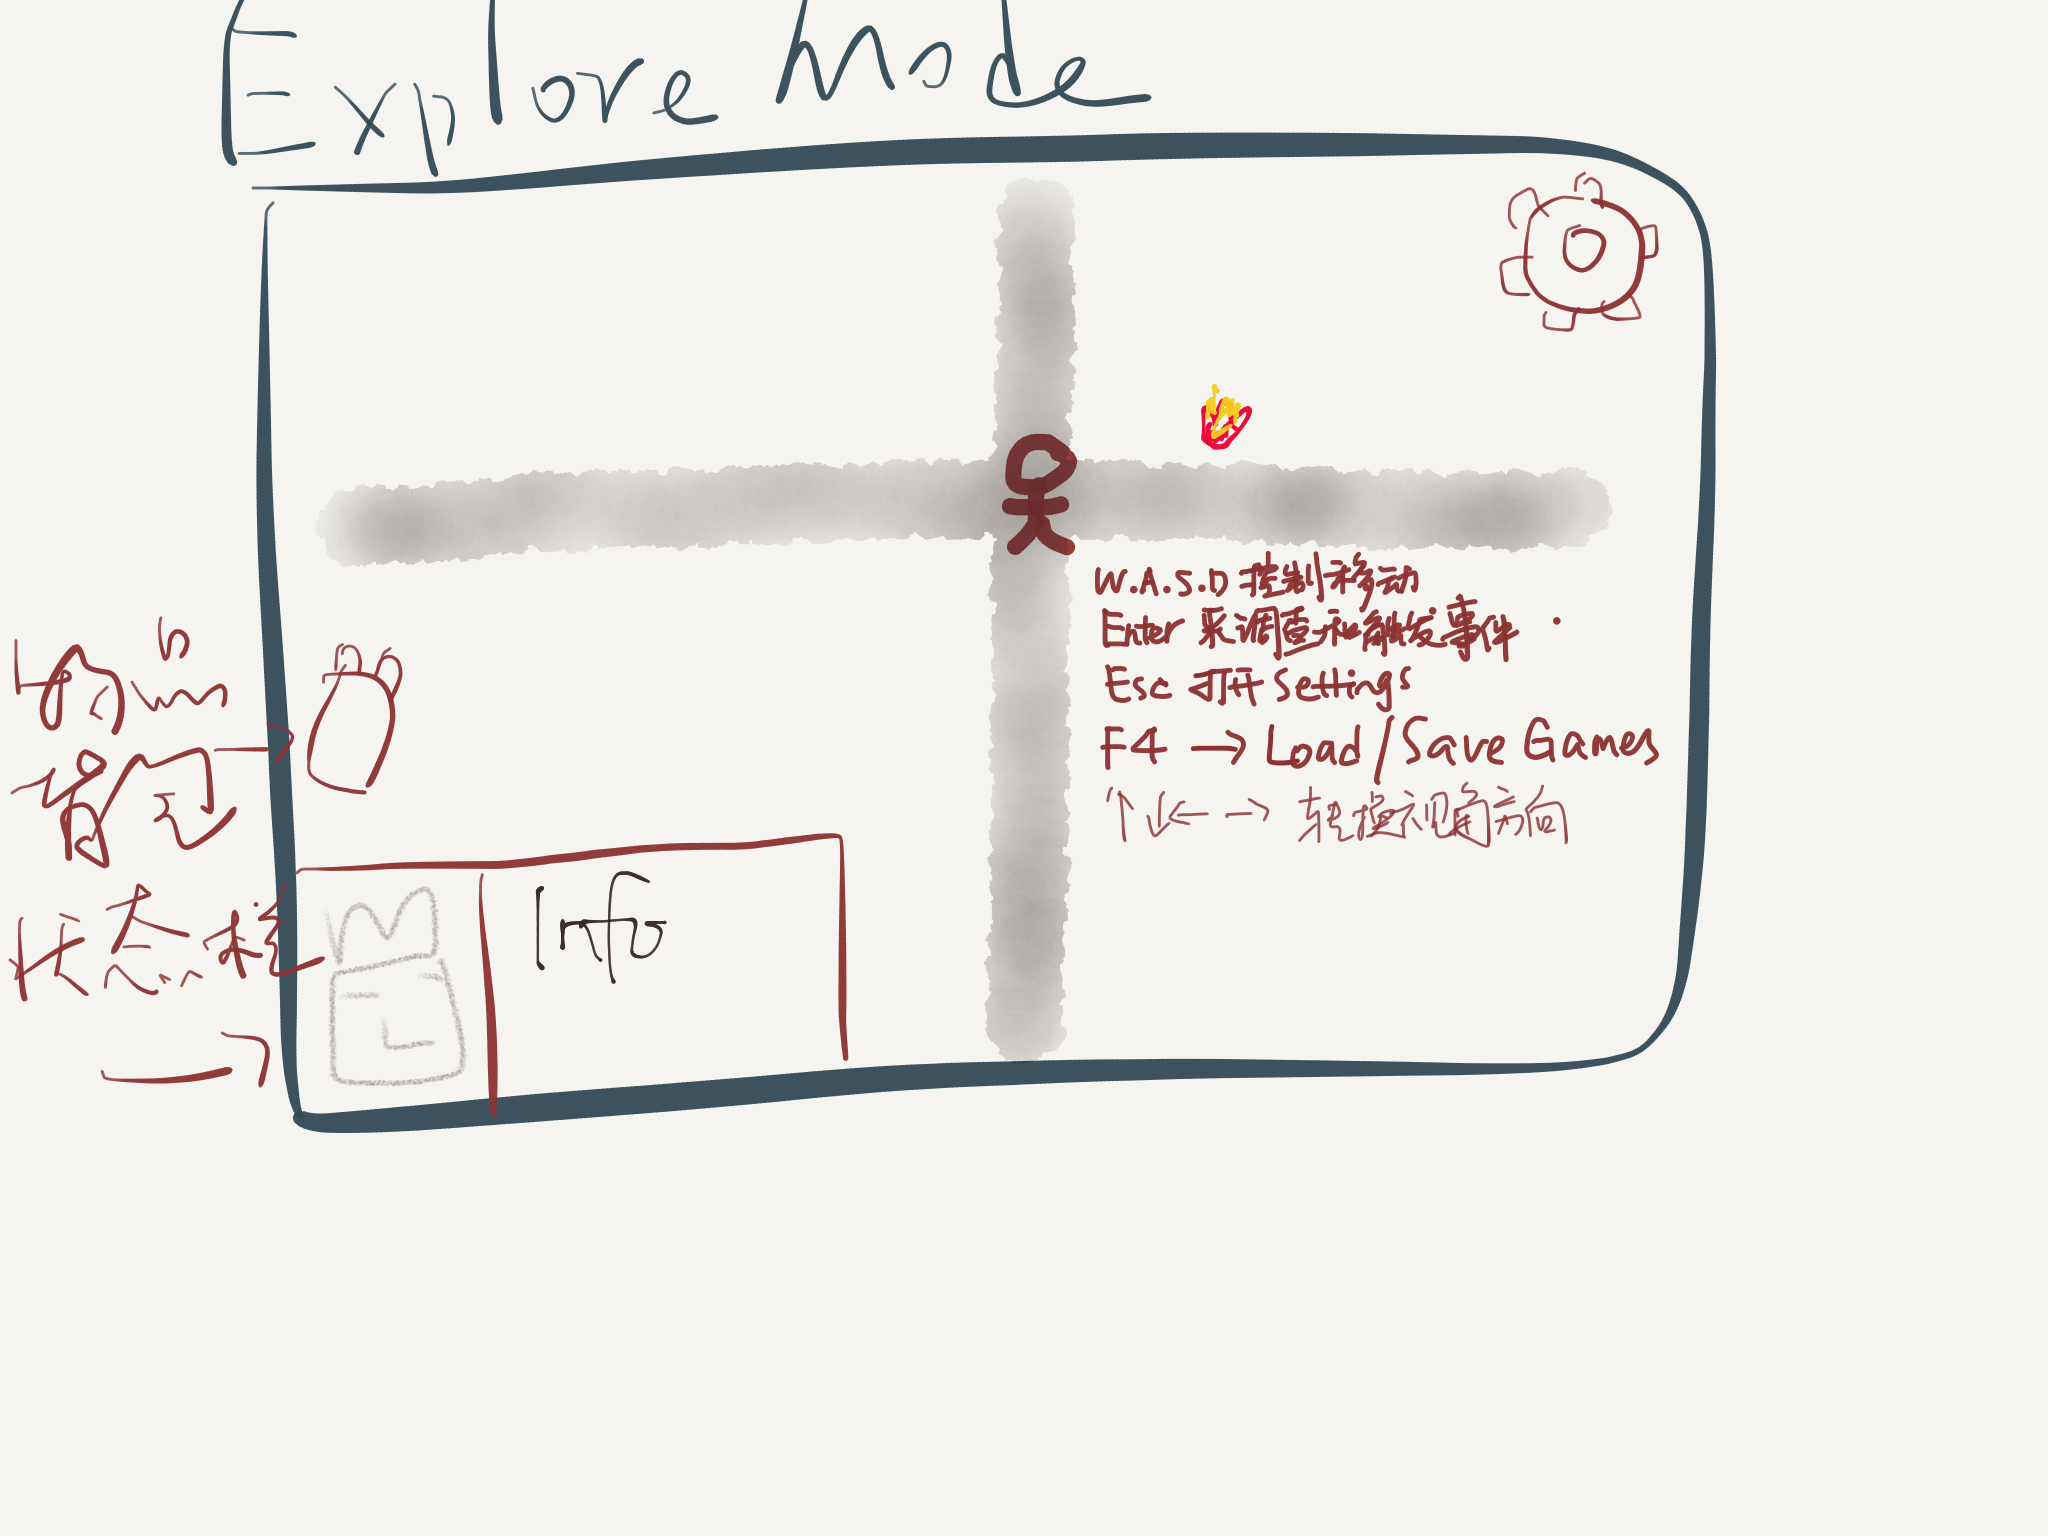 Explore Mode
W.A.S.D 控制移动
Enter 来调查和触发事件
Esc 打开 Settings
F4 → Load/Save Games
↑↓←→ 转换视角方向
背包
状态栏
Info